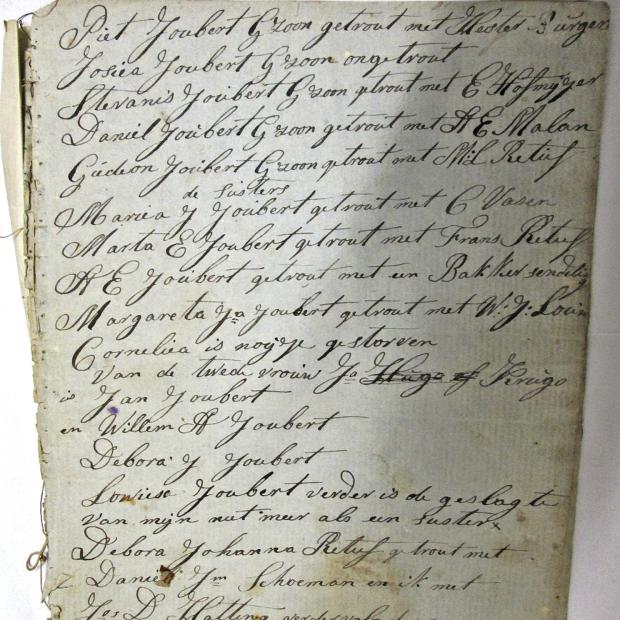 Piet Joubert Gzoon getrout met Hester Burger
Josiea Joubert Gzoon ongetrout
Stevanis Joubert Gzoon getrout met E Hofmyer
Daniel Joubert Gzoon getrout met A E Malan
Gúdeon Joúbert Gzoon getrout met M: L Retief
de susters
Mariea J Joubert getrout met C Vasen
Marta E Joubert getrout met Frans Retief
A E Joúbert getrout met een Bakker
Margareta Ja Joubert getrout met W: J: Louw
Corneliea is nojge gestorven
van de twede vrouw Ja Húgo of Krugo
is Jan Joubert
en Willem A Joubert
Debora J Joubert
Lowiese Joubert verder is de geslagte
van mijn niet meer als een suster
Debora Johanna Retief getrout met
Daniel Jm Schoeman en ik met
Jos D Hatting verder